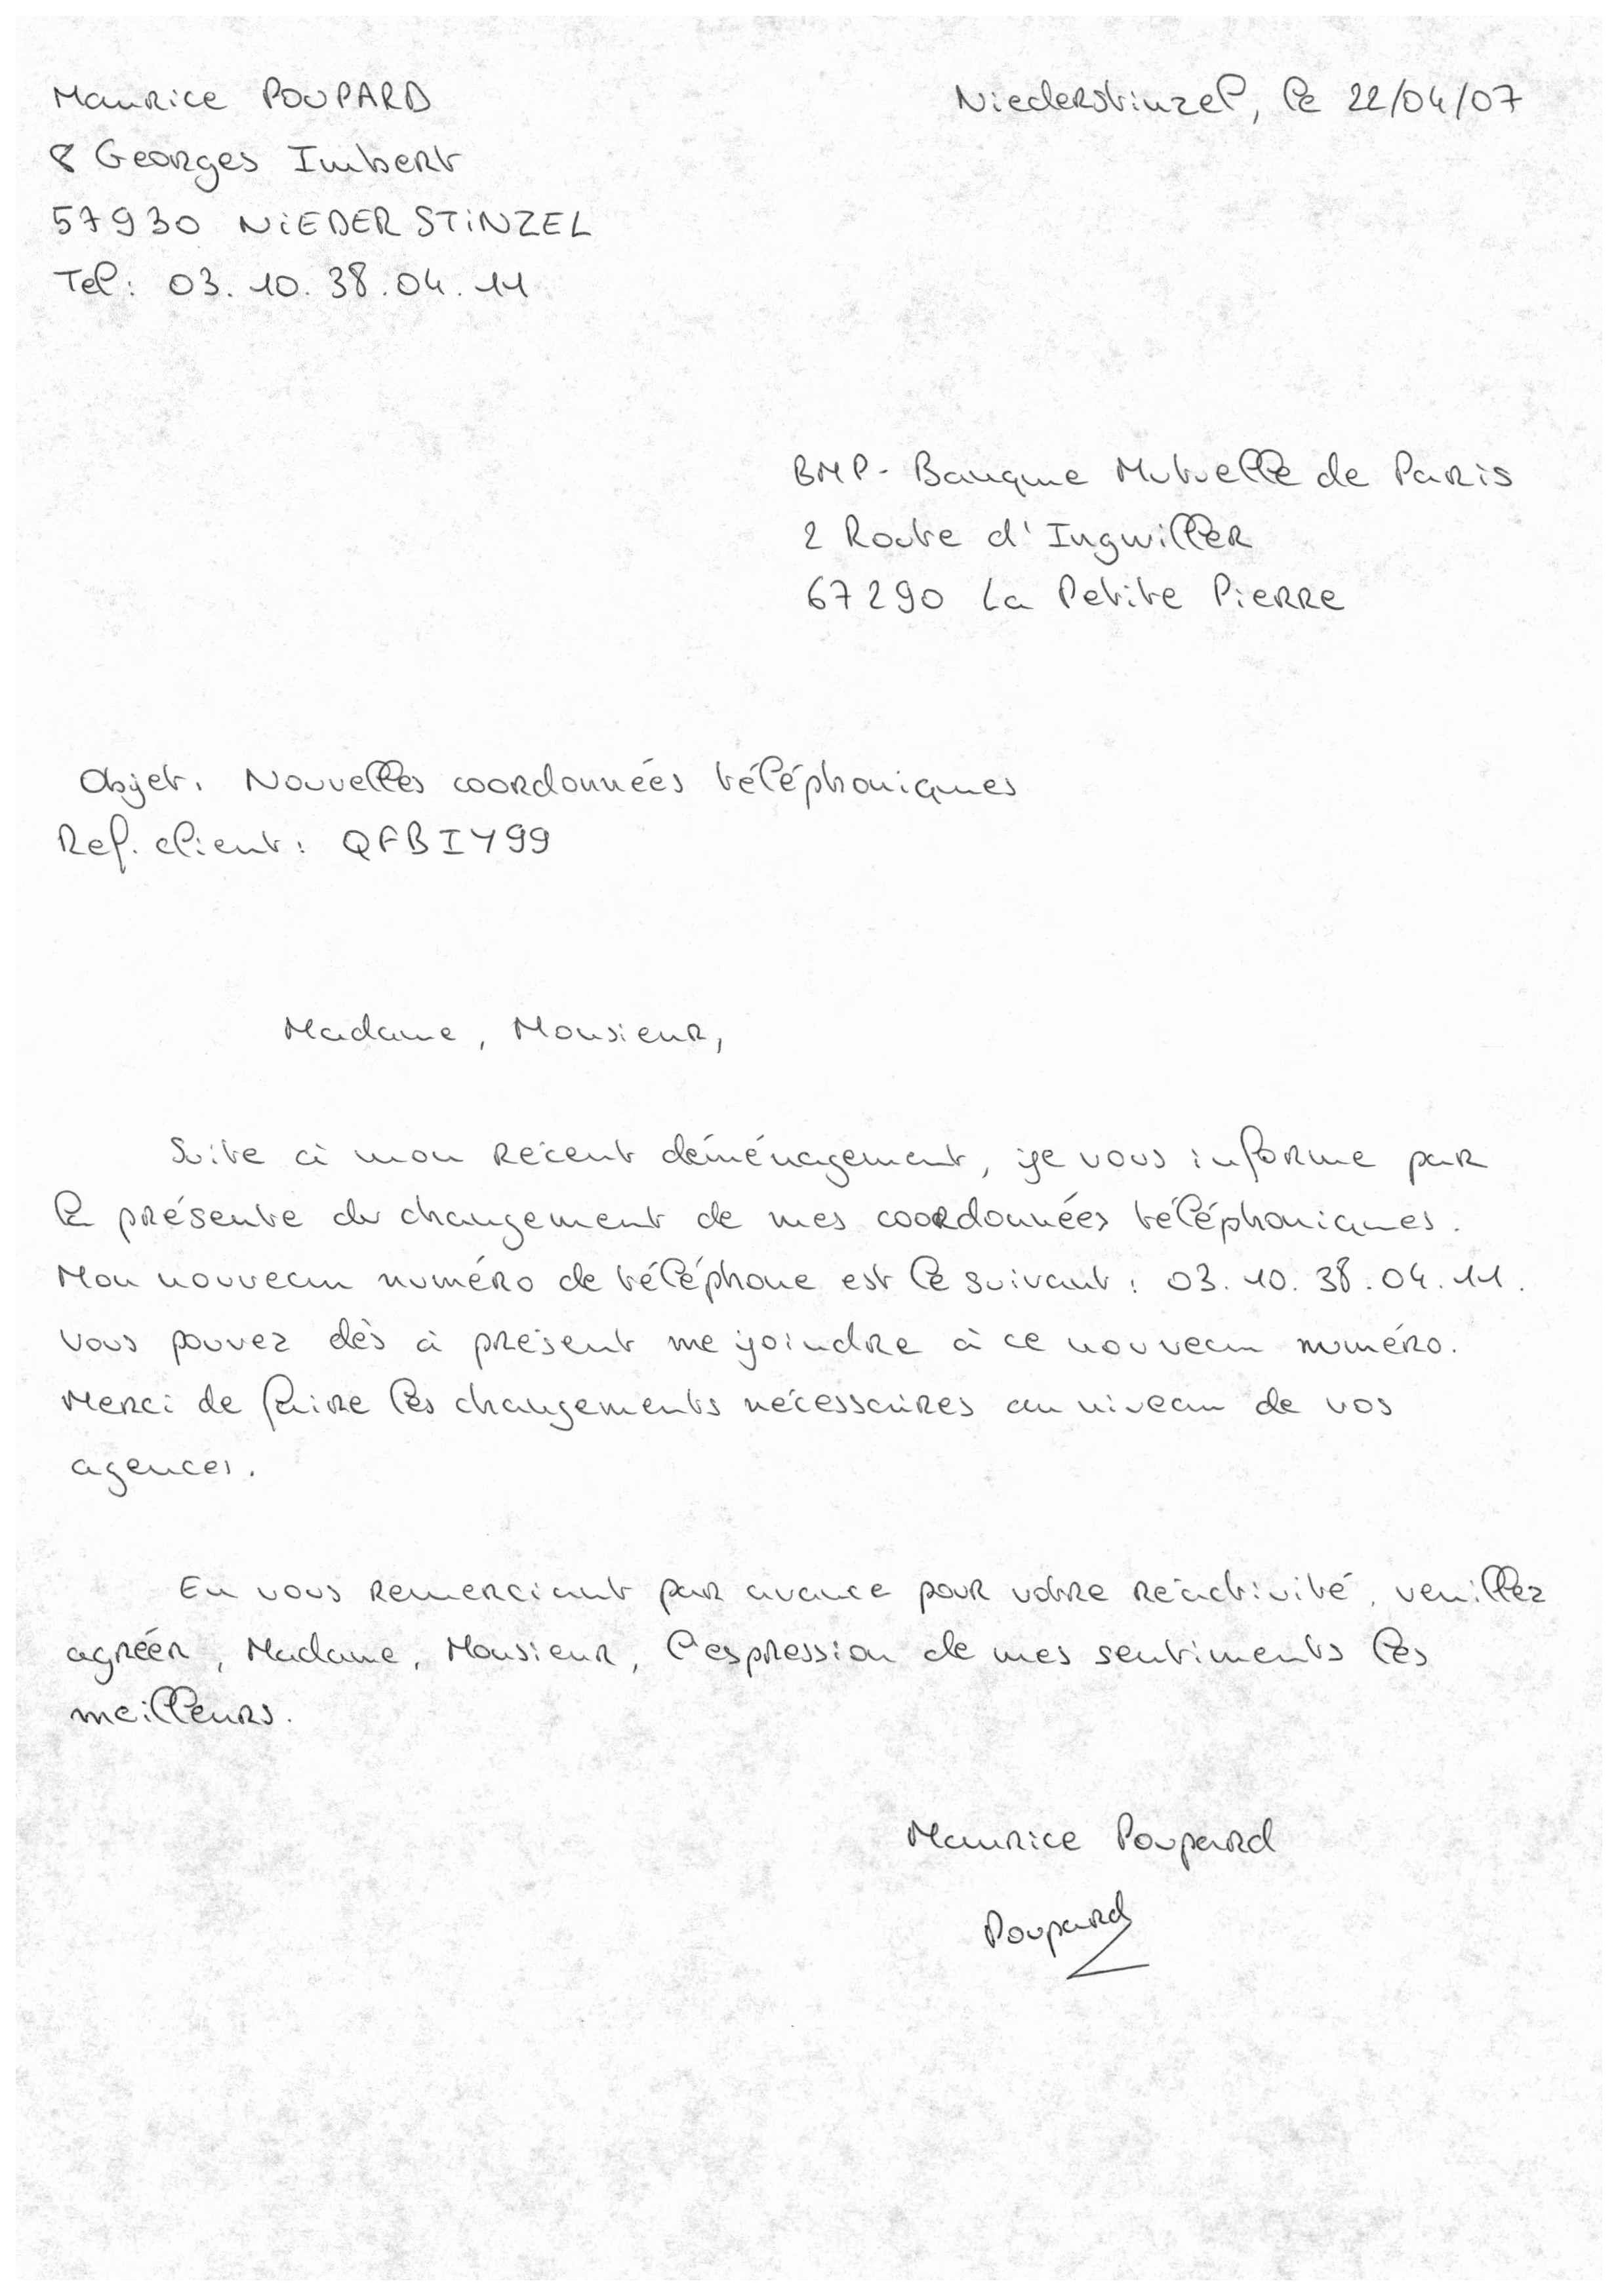 Maurice POUPARD
Niederstinzel, le 22/04/07
8 Georges Imbert
57930 NiEDER STiNZEL
Tel: 03.10.38.04.11
BMP- Banque Mutuelle de Paris
2 Route d'Ingwiller
67290 La Petite Pierre
Objet. Nouvelles coordonnées téléphoniques
Ref. client: QFBIY99
Madame, Monsieur,
Suite à mon récent déménagement, je vous informe par
la présente du changement de mes coordonnées téléphoniques.
Mon nouveau numéro de téléphone est le suivant: 03.10.38.04.11.
Vous pouvez dès à présent me joindre à ce nouveau numéro.
Merci de faire les changements nécessaires au niveau de vos
agences.
En vous remerciant par avance pour votre réactivité, veuillez
agréer, Madame, Monsieur, l'espression de mes sentiments les
meilleurs.
Maurice Poupard
Poupard